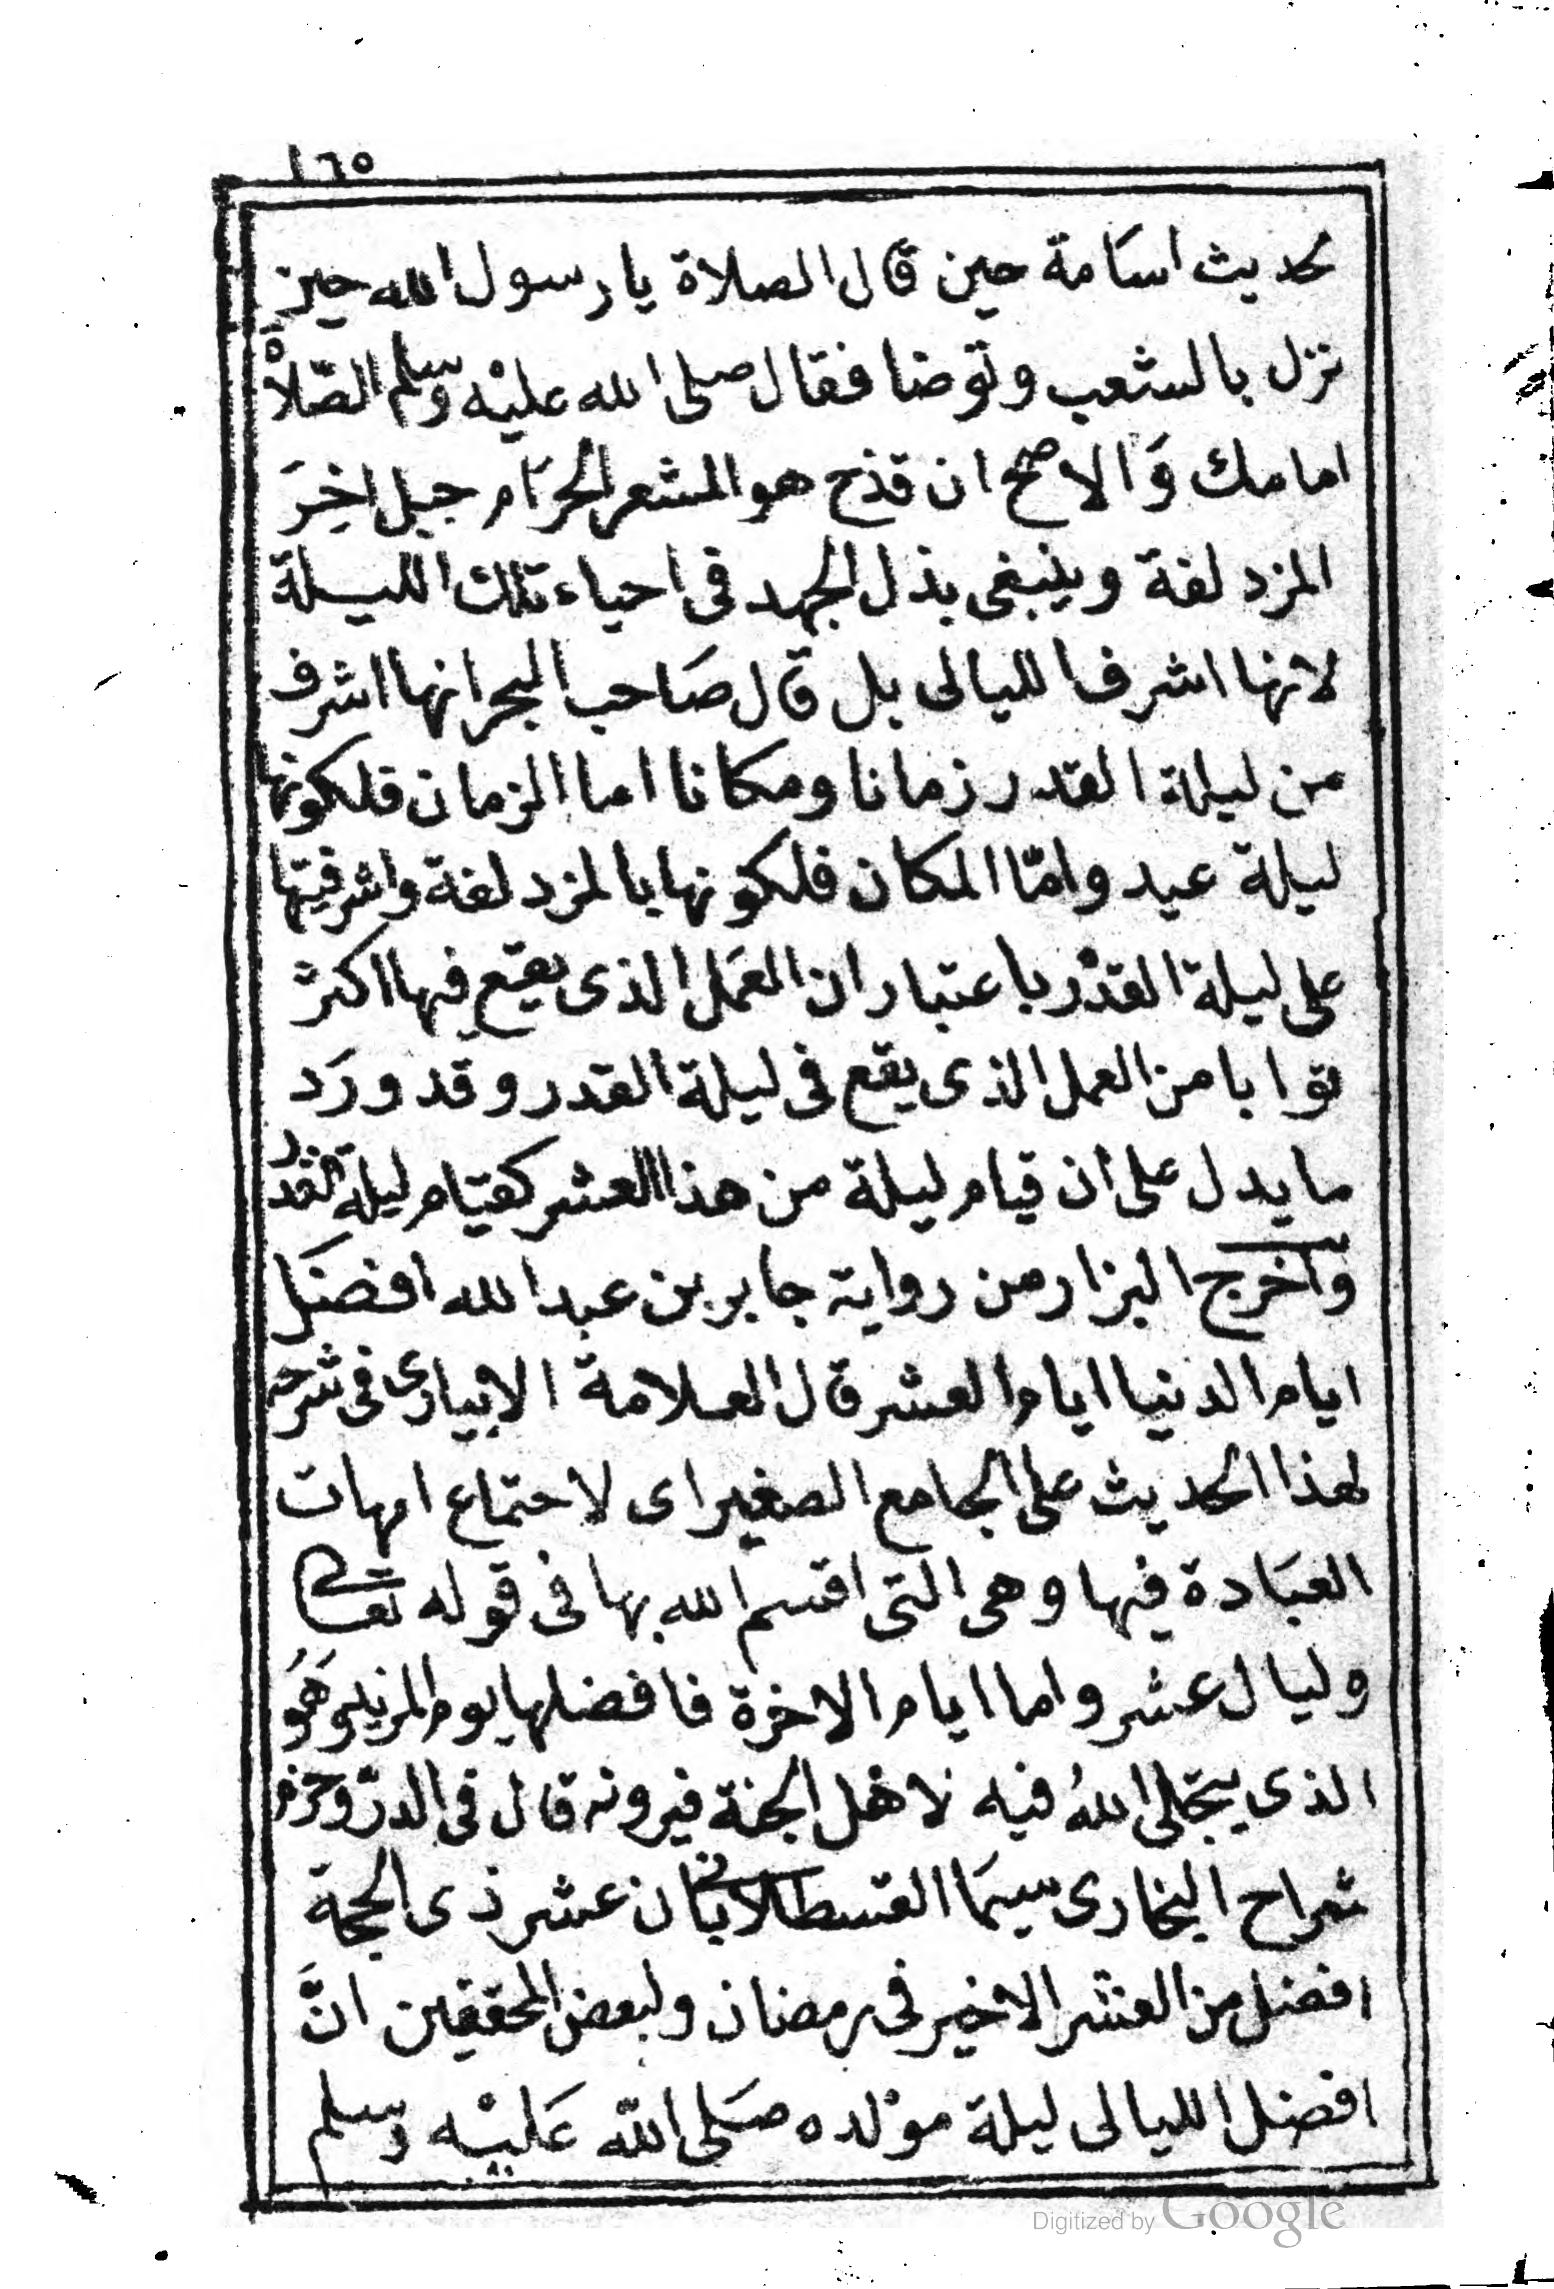 ١٦٥
لحديث اسامة حين قال الصلاة يارسول الله حين
نزل بالشعب وتوضا فقال صلى الله عليْه وسلم الصّلاة
امامك وَالاصح ان قزح هو المشعر الحرَام جبل اخِرَ
المزدلفة وينبغى بذل الجهد فى احياء تلك الليلة
لانها اشرف الليالى بل قال صَاحب البحر انها اشرف
من ليلة القدر زمانا ومكانا اما الزمان فلكونها
ليلة عيد وامّا المكان فلكونها بالمزدلفة واشرفيتها
على ليلة القدْر باعتبار ان العمَل الذى يقع فيها اكثر
ثوابا من العمل الذى يقع فى ليلة القدر وقد ورَد
ما يدل على ان قيام ليلة من هذا العشر كقيام ليلة القدر
واخرج البزار من رواية جابر بن عبد الله افضَل
ايام الدنيا ايام العشر قال العلامة الابيارى فى شرحه
لهذا الحديث على الجامع الصغير اى لاجتماع امهات
العبَادة فيها وهى التى اقسم الله بها فى قوله تعالى
وليال عشر واما ايام الاخرة فافضلها يوم المزيد وَهُو
الذى يتجلى اللهُ فيه لاهْل الجنة فيرونه قال فى الدرّ وجزم
شراح البخارى سيمَا القسطلانى بان عشر ذى الحجة
افضل من العشر الاخير فى رمضان ولبعض المحققين انَّ
افضل الليالى ليلة موْلده صَلى اللّه عَليْه وسلم
Digitized by Google